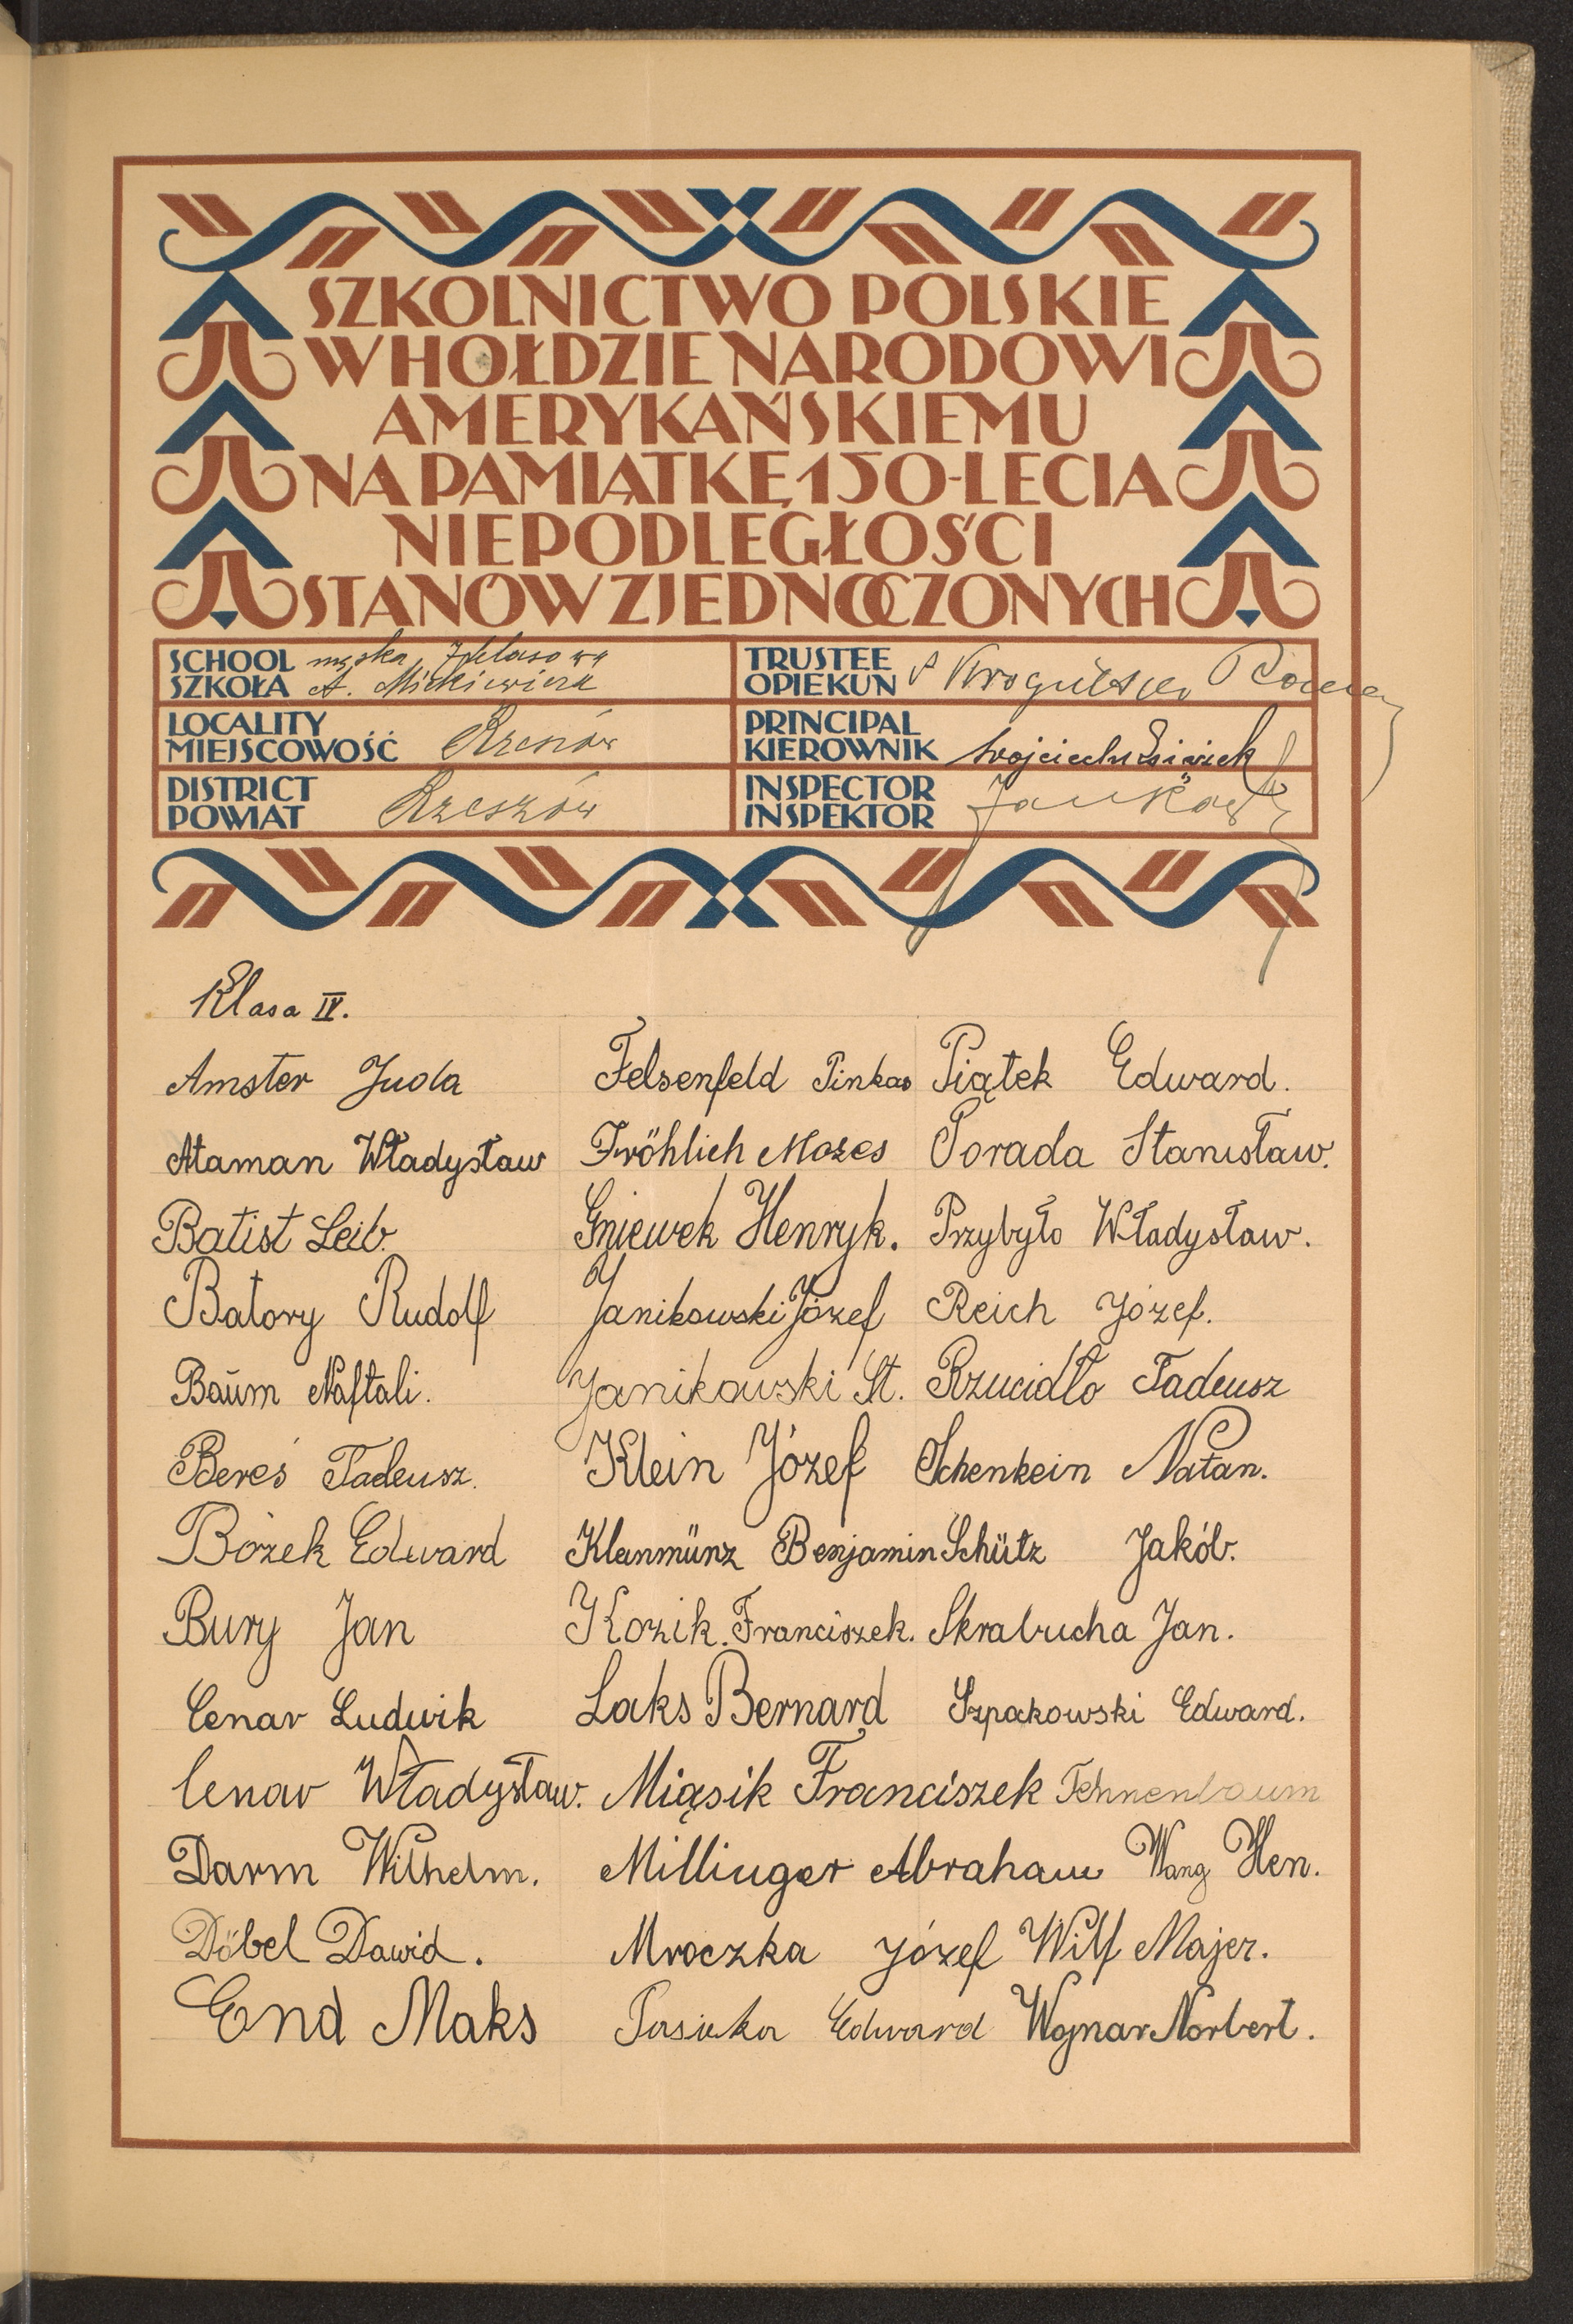 SZKOLNICTWO POLSKIE
W HOŁDZIE NARODOWI
AMERYKAŃSKIEMU
NA PAMIĄTKĘ 150-LECIA
NIEPODLEGŁOŚCI
STANÓW ZJEDNOCZONYCH
SCHOOL męska 7 klasowa
SZKOŁA A. Mickiewicza
TRUSTEE
OPIEKUN
LOCALITY
MIEJSCOWOŚĆ Rzeszów
PRINCIPAL
KIEROWNIK Wojciech
DISTRICT
POWIAT Rzeszów
INSPECTOR
INSPEKTOR
Klasa IV.
Amster Juda
Ataman Władysław
Batist Leib.
Batory Rudolf
Baum Naftali.
Bereś Tadeusz.
Bożek Edward
Bury Jan
Cenar Ludwik
Cenar Władysław.
Darm Wilhelm.
Döbel Dawid.
End Maks
Felsenfeld Pinkas
Fröhlich Mozes
Gniewek Henryk.
Janikowski Józef
Janikowski St.
Klein Józef
Kleinmünz Benjamin
Kozik Franciszek.
Laks Bernard
Miąsik Franciszek
Millinger Abraham
Mroczka Józef
Pasieka Edward
Piątek Edward.
Porada Stanisław.
Przybyło Władysław.
Reich Józef.
Rzucidło Tadeusz
Schenkein Natan.
Schütz Jakób.
Skrabucha Jan.
Szpakowski Edward.
Tennenbaum
Wang Hen.
Wilf Majer.
Wojnar Norbert.